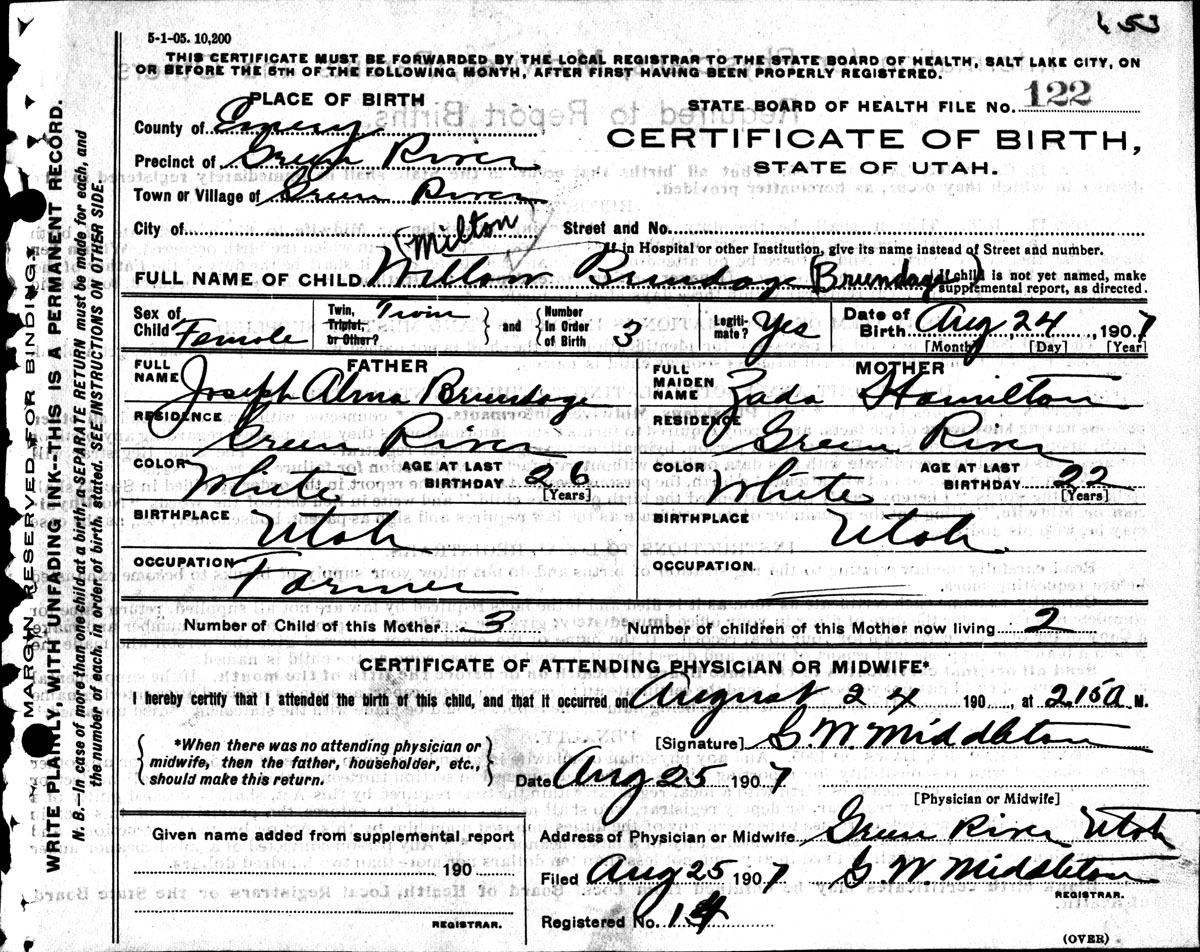 653
5-1-05. 10,200
THIS CERTIFICATE MUST BE FORWARDED BY THE LOCAL REGISTRAR TO THE STATE BOARD OF HEALTH, SALT LAKE CITY, ON
OR BEFORE THE 5TH OF THE FOLLOWING MONTH, AFTER FIRST HAVING BEEN PROPERLY REGISTERED.
PLACE OF BIRTH
STATE BOARD OF HEALTH FILE No. 122
County of Emery
CERTIFICATE OF BIRTH,
Precinct of Green River
STATE OF UTAH.
Town or Village of Green River
City of
(Milton
Street and No.
If in Hospital or other Institution, give its name instead of Street and number.
FULL NAME OF CHILD Willow Brundage (Brundage) If child is not yet named, make supplemental report, as directed.
Sex of Child Female
Twin, Triplet, or Other? Twin
and
Number in Order of Birth 3
Legitimate? Yes
Date of Birth Aug 24, 1907
[Month] [Day] [Year]
FATHER
FULL NAME Joseph Alma Brundage
MOTHER
FULL MAIDEN NAME Zada Hamilton
RESIDENCE Green River
RESIDENCE Green River
COLOR White
AGE AT LAST BIRTHDAY 26 [Years]
COLOR White
AGE AT LAST BIRTHDAY 22 [Years]
BIRTHPLACE Utah
BIRTHPLACE Utah
OCCUPATION Farmer
OCCUPATION
Number of Child of this Mother 3
Number of children of this Mother now living 2
CERTIFICATE OF ATTENDING PHYSICIAN OR MIDWIFE*
I hereby certify that I attended the birth of this child, and that it occurred on August 24 190 , at 2.15 a M.
*When there was no attending physician or
midwife, then the father, householder, etc.,
should make this return.
[Signature] G. W. Middleton
Date Aug 25 1907
[Physician or Midwife]
Given name added from supplemental report
190
REGISTRAR.
Address of Physician or Midwife Green River Utah
Filed Aug 25 1907 G W Middleton
REGISTRAR.
Registered No. 14
(OVER)
MARGIN RESERVED FOR BINDING.
WRITE PLAINLY, WITH UNFADING INK—THIS IS A PERMANENT RECORD.
N. B.—In case of more than one child at a birth, a SEPARATE RETURN must be made for each, and
the number of each, in order of birth, stated. SEE INSTRUCTIONS ON OTHER SIDE.